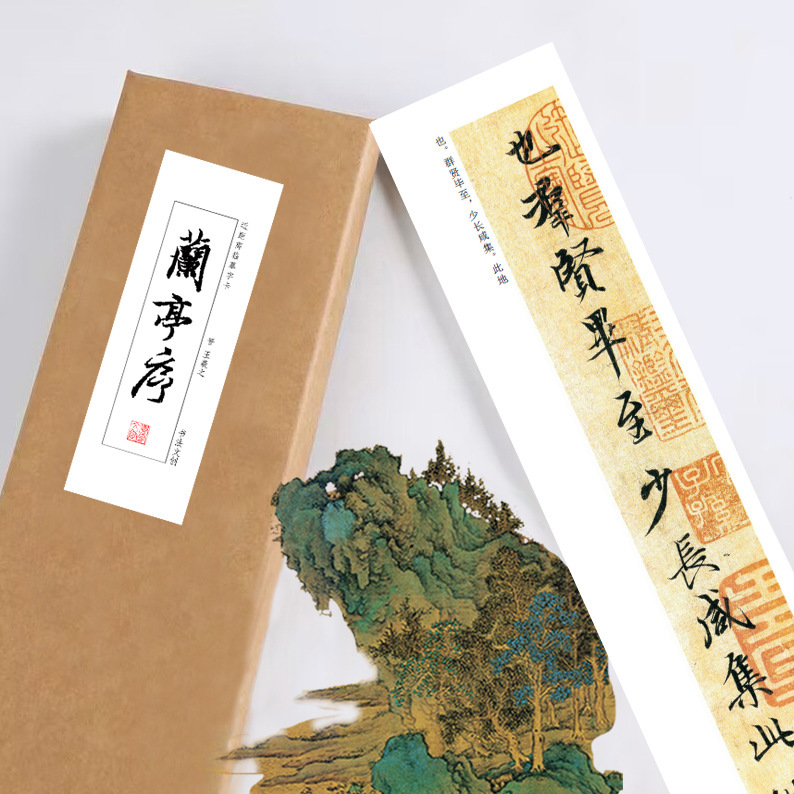 蘭亭序
近距离临摹字卡
晋 王羲之
书法文创
也。群贤毕至，少长咸集。此地
也羣賢畢至少長咸集此